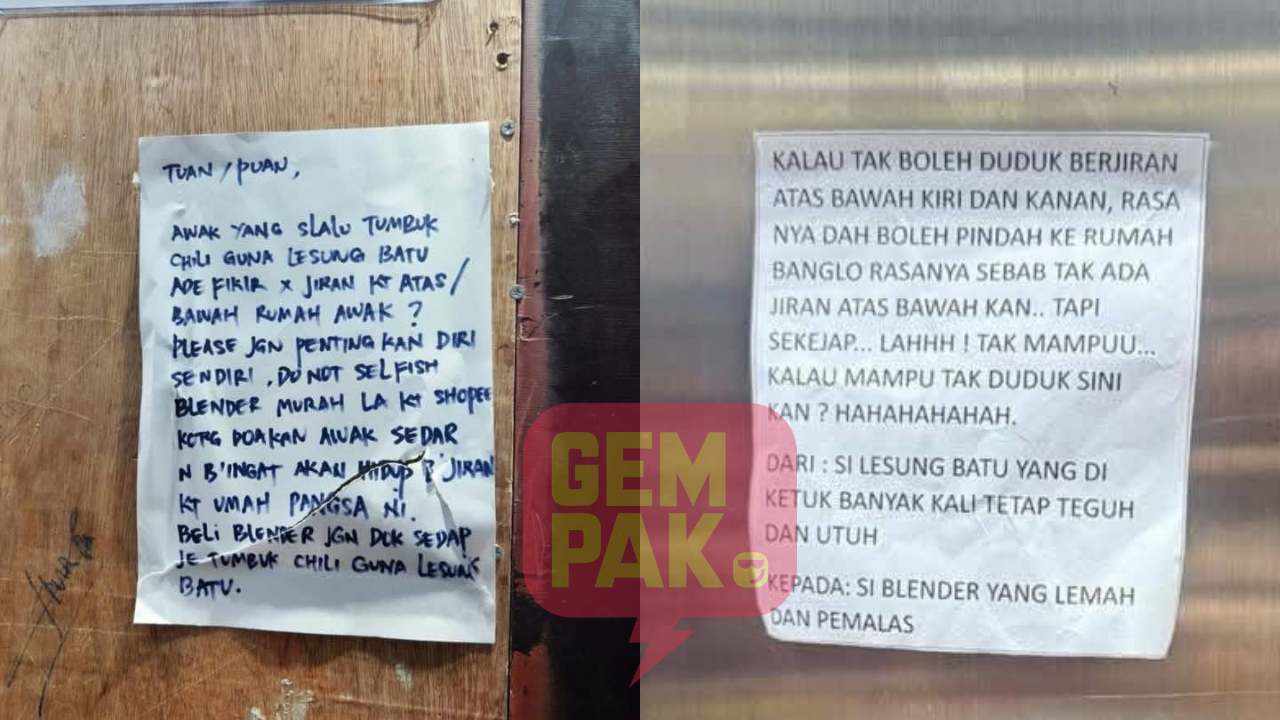 TUAN / PUAN,
AWAK YANG SLALU TUMBUK
CHILI GUNA LESUNG BATU
ADE FIKIR x JIRAN KT ATAS /
BAWAH RUMAH AWAK ?
PLEASE JGN PENTING KAN DIRI
SENDIRI , DO NOT SELFISH
BLENDER MURAH LA KT SHOPEE
KORG DOAKAN AWAK SEDAR
N B'INGAT AKAN HIDUP B'JIRAN
KT UMAH PANGSA NI.
BELI BLENDER JGN DOK SEDAP
JE TUMBUK CHILI GUNA LESUNG
BATU.
KALAU TAK BOLEH DUDUK BERJIRAN
ATAS BAWAH KIRI DAN KANAN, RASA
NYA DAH BOLEH PINDAH KE RUMAH
BANGLO RASANYA SEBAB TAK ADA
JIRAN ATAS BAWAH KAN.. TAPI
SEKEJAP... LAHHH ! TAK MAMPUU...
KALAU MAMPU TAK DUDUK SINI
KAN ? HAHAHAHAHAH.
DARI : SI LESUNG BATU YANG DI
KETUK BANYAK KALI TETAP TEGUH
DAN UTUH
KEPADA: SI BLENDER YANG LEMAH
DAN PEMALAS
GEM
PAK